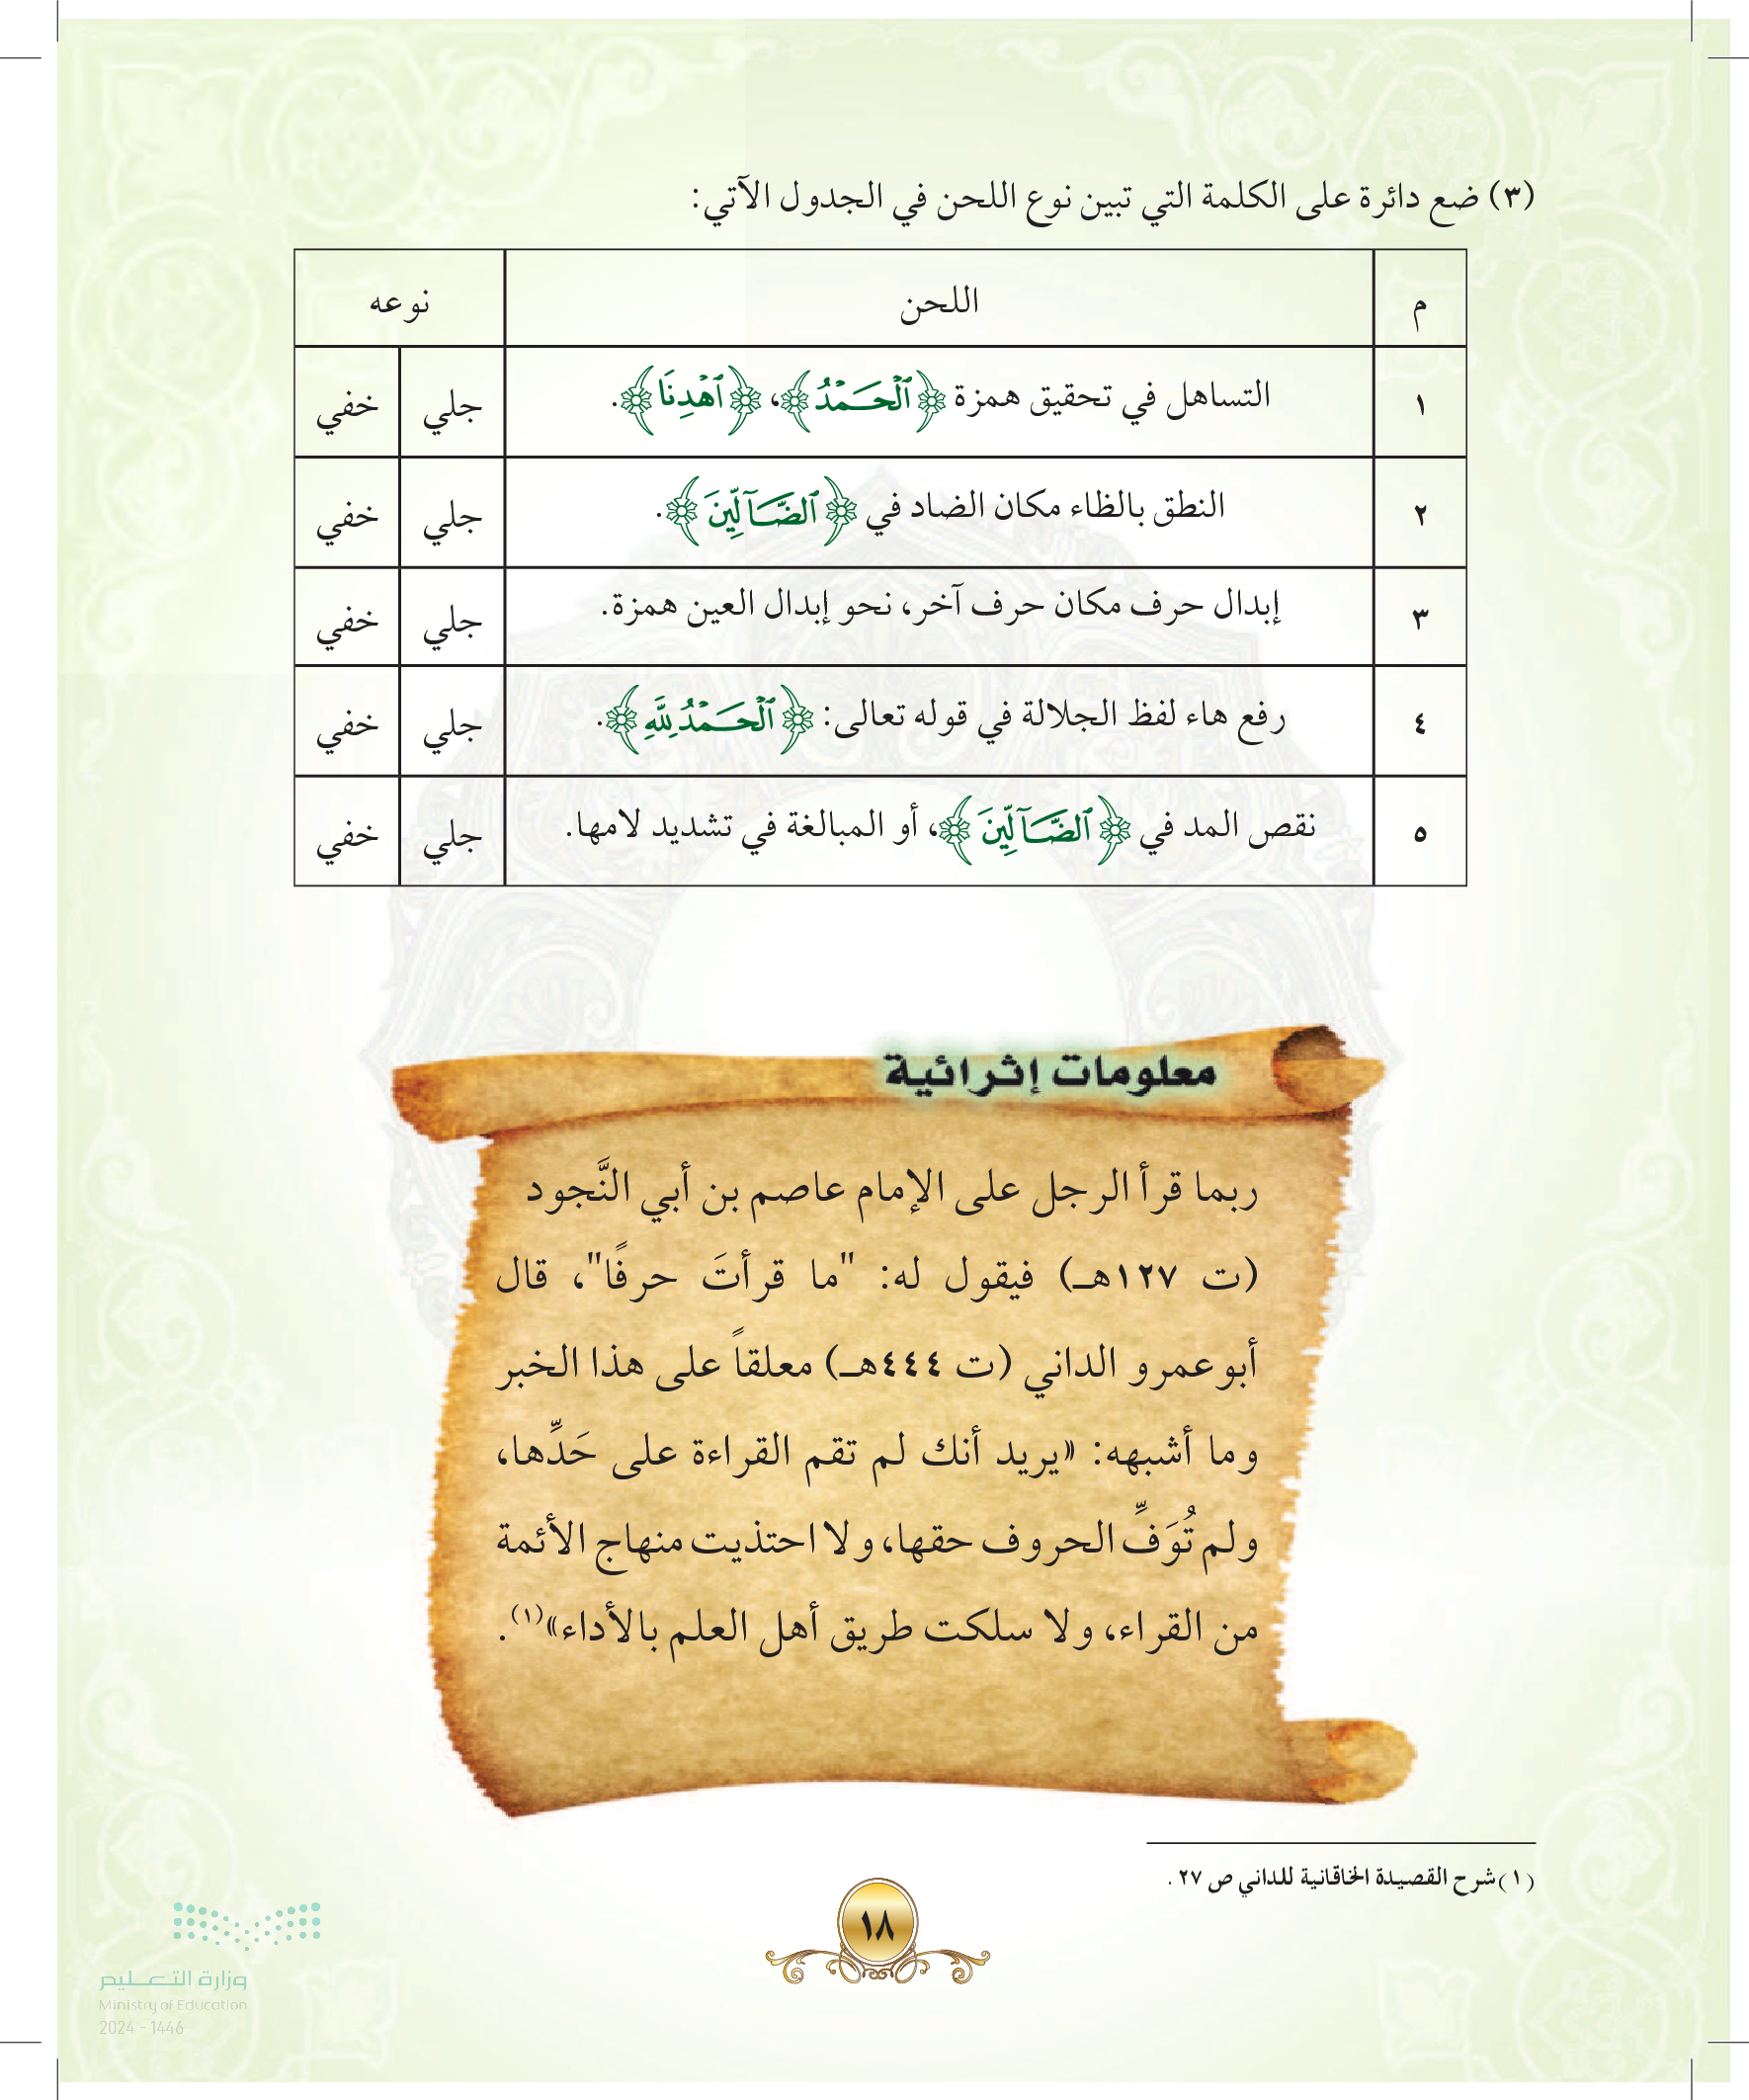 (٣) ضع دائرة على الكلمة التي تبين نوع اللحن في الجدول الآتي:
م اللحن نوعه
١ التساهل في تحقيق همزة ﴿ٱلْحَمْدُ﴾، ﴿ٱهْدِنَا﴾. جلي خفي
٢ النطق بالظاء مكان الضاد في ﴿ٱلضَّآلِّينَ﴾. جلي خفي
٣ إبدال حرف مكان حرف آخر، نحو إبدال العين همزة. جلي خفي
٤ رفع هاء لفظ الجلالة في قوله تعالى: ﴿ٱلْحَمْدُ لِلَّهِ﴾. جلي خفي
٥ نقص المد في ﴿ٱلضَّآلِّينَ﴾، أو المبالغة في تشديد لامها. جلي خفي
معلومات إثرائية
ربما قرأ الرجل على الإمام عاصم بن أبي النَّجود
(ت ١٢٧هـ) فيقول له: "ما قرأتَ حرفًا"، قال
أبو عمرو الداني (ت ٤٤٤هـ) معلقاً على هذا الخبر
وما أشبهه: «يريد أنك لم تقم القراءة على حَدِّها،
ولم تُوَفِّ الحروف حقها، ولا احتذيت منهاج الأئمة
من القراء، ولا سلكت طريق أهل العلم بالأداء»(١).
(١) شرح القصيدة الخاقانية للداني ص ٢٧ .
١٨
وزارة التعليم
Ministry of Education
2024 - 1446